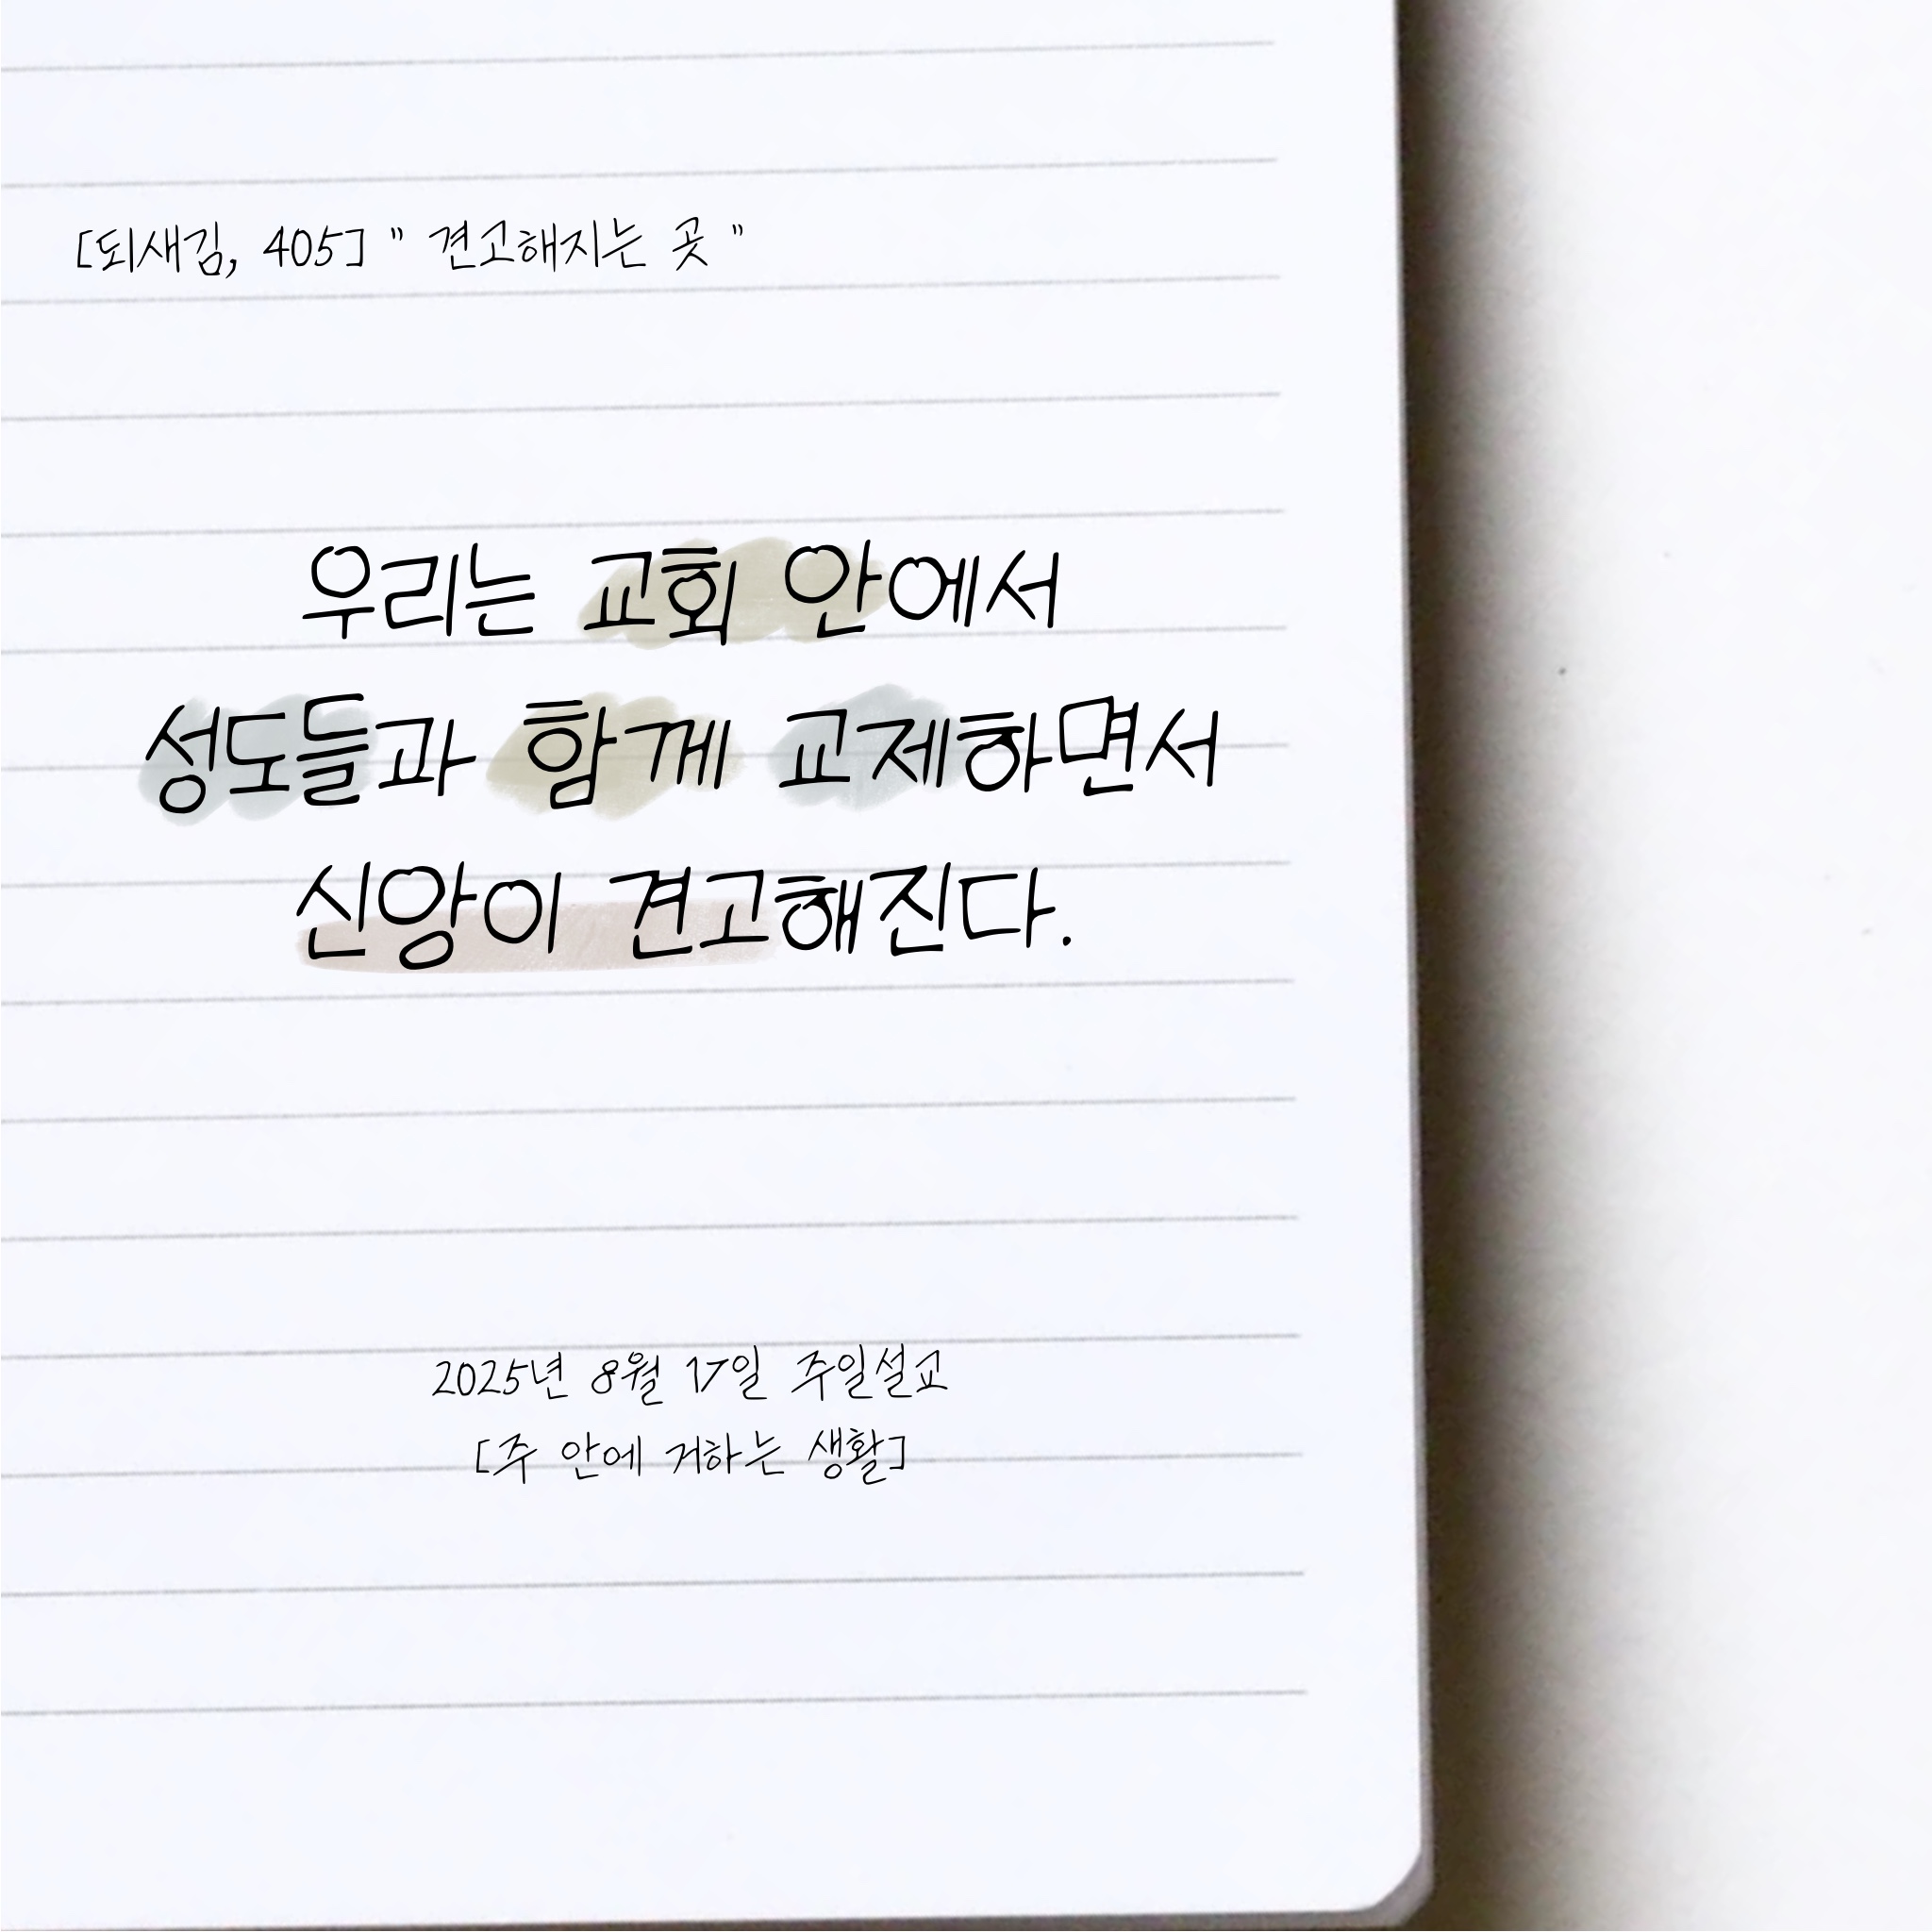 [되새김, 405] " 견고해지는 곳 "
우리는 교회 안에서
성도들과 함께 교제하면서
신앙이 견고해진다.
2025년 8월 17일 주일설교
[주 안에 거하는 생활]